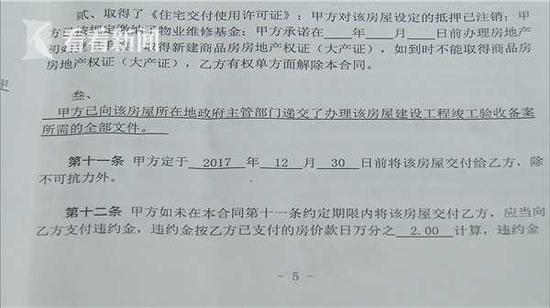 贰、取得了《住宅交付使用许可证》；甲方对该房屋设定的抵押已注销；甲
方 规定缴纳 物业维修基金；甲方承诺在 年 月 日前办理房地产
初 得新建商品房房地产权证（大产证），如到时不能取得商品房
房地产权证（大产证），乙方有权单方面解除本合同。
看看新闻
叁、
甲方已向该房屋所在地政府主管部门递交了办理该房屋建设工程竣工验收备案
所需的全部文件。
第十一条 甲方定于 2017 年 12 月 30 日前将该房屋交付给乙方，除
不可抗力外。
第十二条 甲方如未在本合同第十一条约定期限内将该房屋交付乙方，应当向
乙方支付违约金，违约金按乙方已支付的房价款日万分之 2.00 计算，违约金
- 5 -